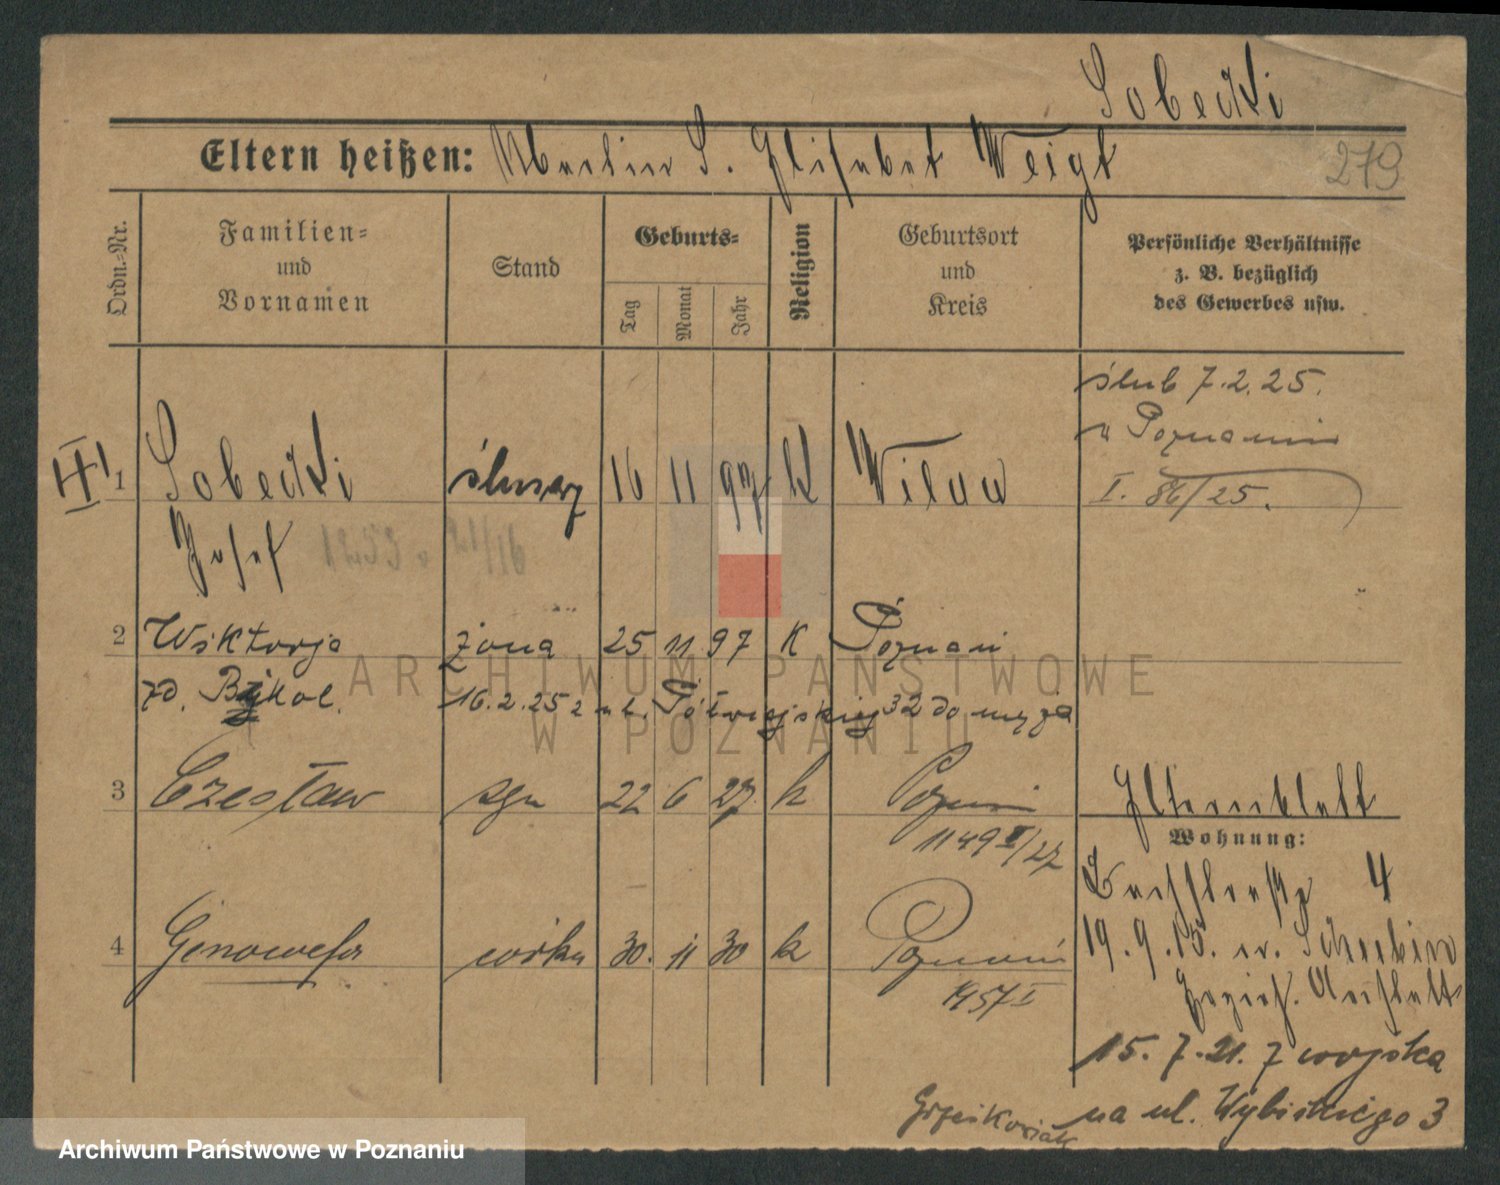 Sobecki
Eltern heißen: Martin S. Elisabet Weigt
279
Ordn.-Nr.
Familien-
und
Vornamen
Stand
Geburts-
Tag
Monat
Jahr
Religion
Geburtsort
und
Kreis
Persönliche Verhältnisse
z. B. bezüglich
des Gewerbes usw.
ślub 7.2.25.
w Poznaniu
I. 86/25.
1 Sobecki ślusarz 16 11 97 K Wilda
Josef
2 Wiktorja żona 25 11 97 K Poznań
zd. Bykol. 16.2.25 z ul. Półwiejskiej 32 do męża
3 Czesław syn 22 6 27 k Poznań
1149 II/27
4 Genowefa córka 30. 11 30 k Poznań
1957 I
Elternblatt
Wohnung:
4
19.9.13. w. Schubin
Erzieh. Anstalt
15.7.21. z wojska
na ul. Wybickiego 3
Grześkowiak
ARCHIWUM PAŃSTWOWE
W POZNANIU
Archiwum Państwowe w Poznaniu